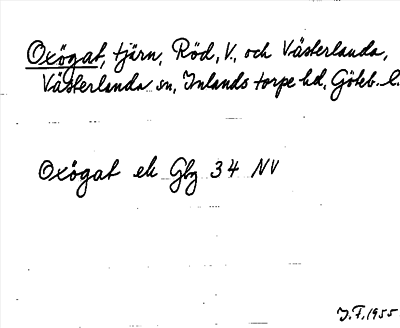 Oxögat, tjärn, Röd, V. och Västerlanda,
Västerlanda sn, Inlands torpe hd, Göteb. l.
Oxögat ek Gbg 34 NV
J.F. 1955